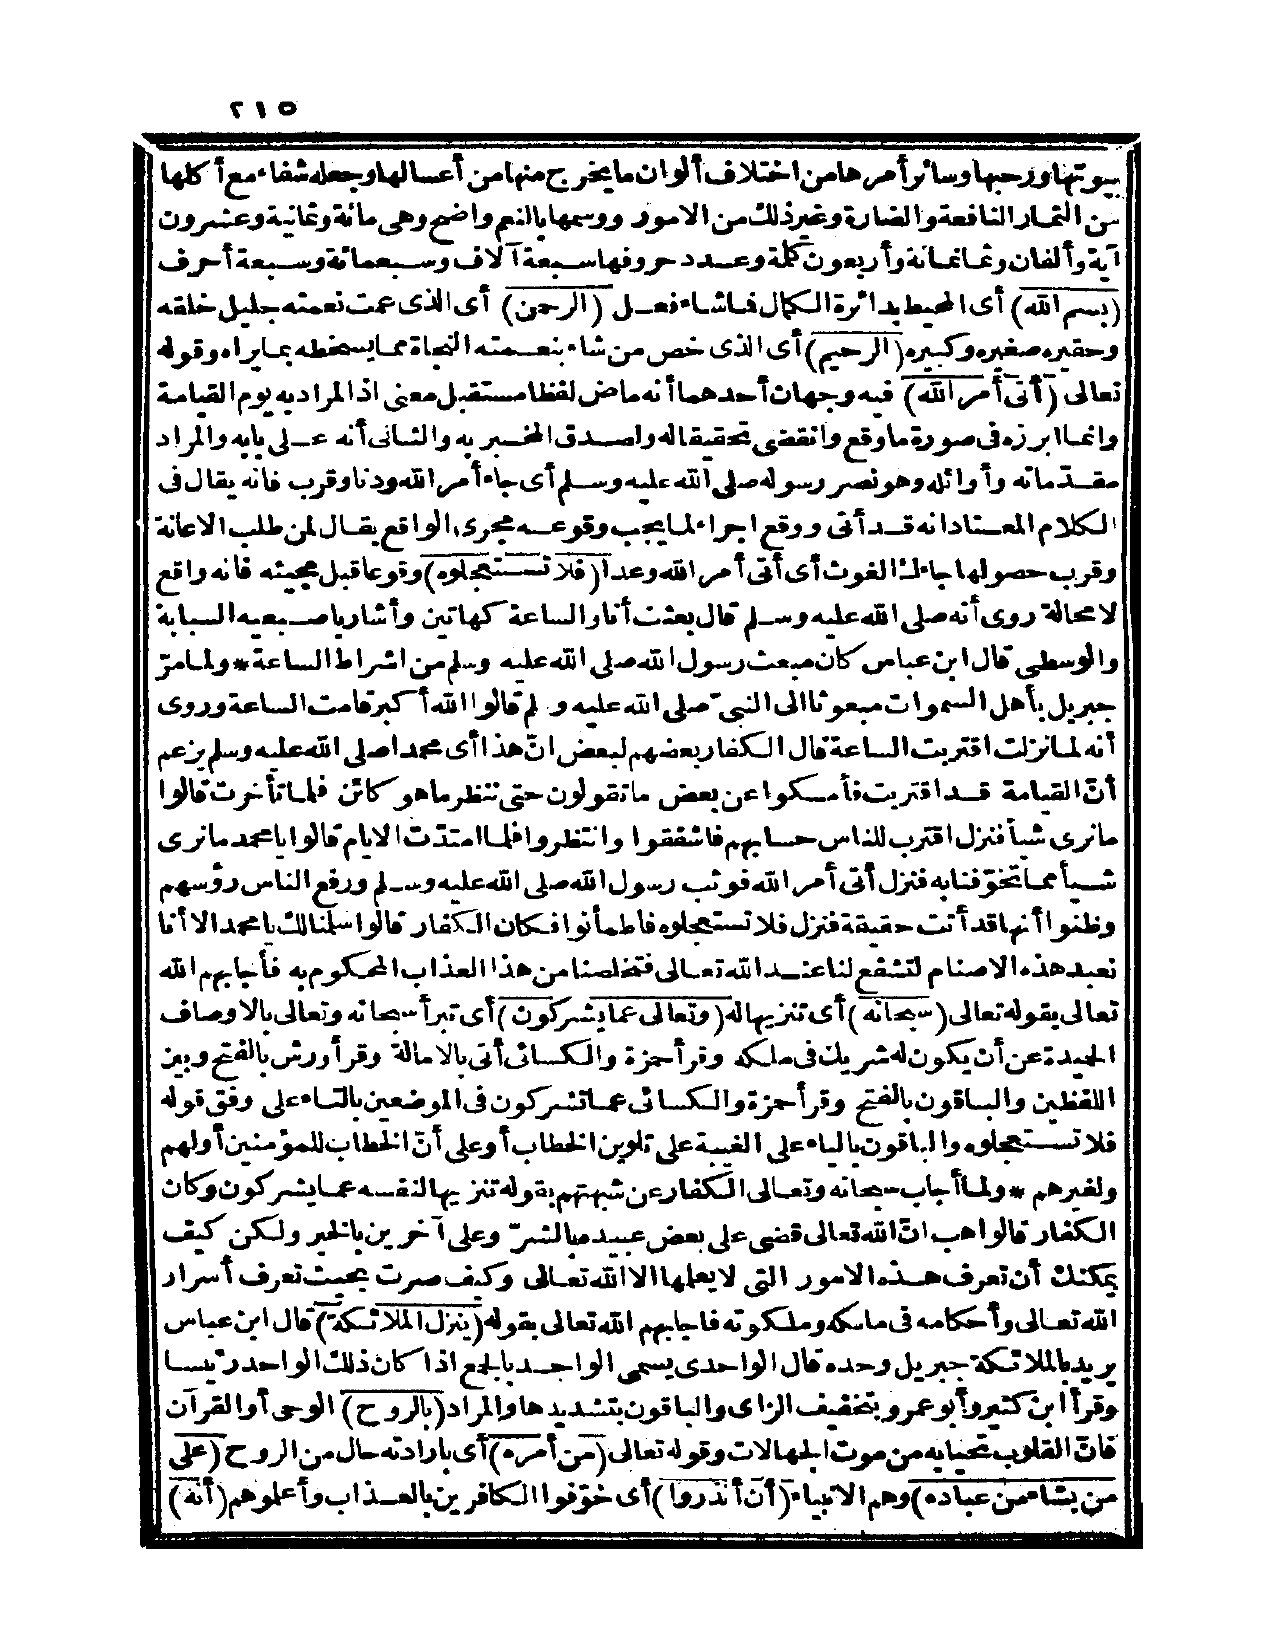 ٢١٥
بيوتها ورحبها وسائر أمرها من اختلاف ألوان ما يخرج منها من أعسالها وجعله شفاء مع أكلها
من الثمار النافعة والضارة وغير ذلك من الامور ووسمها بالنعم واضح وهى مائة وثمانية وعشرون
آية وألفان وثمانمائة وأربعون كلة وعدد حروفها سبعة آلاف وسبعمائة وسبعة أحرف
(بسم الله) أى المحيط بدائرة الكمال فاشاء فعل (الرحمن) أى الذى عمت نعمته جليل خلقه
وحقيره صغيره وكبيره (الرحيم) أى الذى خص من شاء بنعمته النجاة مما يسخطه بما يراه وقوله
تعالى (أتى أمر الله) فيه وجهان أحدهما أنه ماض لفظا مستقبل معنى اذ المراد به يوم القيامة
وانما ابرزه فى صورة ما وقع وانقضى تحقيقا له ولصدق المخبر به والثانى أنه على بابه والمراد
مقدّماته وأوائله وهو نصر رسوله صلى الله عليه وسلم أى جاء أمر الله ودنا وقرب فانه يقال فى
الكلام المعتاد انه قد أتى ووقع اجراء لما يجب وقوعه مجرى الواقع يقال لمن طلب الاعانة
وقرب حصولها جاءك الغوث أى أتى أمر الله وعدا (فلا تستعجلوه) وقوعا قبل مجيئه فانه واقع
لا محالة روى أنه صلى الله عليه وسلم قال بعثت أنا والساعة كهاتين وأشار باصبعيه السبابة
والوسطى قال ابن عباس كان مبعث رسول الله صلى الله عليه وسلم من اشراط الساعة * ولما مرّ
جبريل بأهل السموات مبعوثا الى النبىّ صلى الله عليه وسلم قالوا الله أكبر قامت الساعة وروى
أنه لما نزلت اقتربت الساعة قال الكفار بعضهم لبعض انّ هذا أى محمدا صلى الله عليه وسلم يزعم
أنّ القيامة قد اقتربت فأمسكوا عن بعض ما تقولون حتى ننظر ما هو كائن فلما تأخرت قالوا
ما نرى شيأ فنزل اقترب للناس حسابهم فاشفقوا وانتظروا فلما امتدّت الايام قالوا يا محمد ما نرى
شيأ مما تخوّفنا به فنزل أتى أمر الله فوثب رسول الله صلى الله عليه وسلم ورفع الناس رؤسهم
وظنوا أنها قد أتت حقيقة فنزل فلا تستعجلوه فاطمأنوا فكان الكفار قالوا سلمنا لك يا محمد الا أنا
نعبد هذه الاصنام لتشفع لنا عند الله تعالى فتخلصنا من هذا العذاب المحكوم به فأجابهم الله
تعالى بقوله تعالى (سبحانه) أى تنزيها له (وتعالى عما يشركون) أى تبرأ سبحانه وتعالى بالاوصاف
الحميدة عن أن يكون له شريك فى ملكه وقرأ حمزة والكسائى أتى بالامالة وقرأ ورش بالفتح وبين
اللفظين والباقون بالفتح وقرأ حمزة والكسائى عما تشركون فى الموضعين بالتاء على وفق قوله
فلا تستعجلوه والباقون بالياء على الغيبة على تلوين الخطاب أو على أنّ الخطاب للمؤمنين أو لهم
ولغيرهم * ولما أجاب سبحانه وتعالى الكفار عن شبهتهم بقوله تنزيها لنفسه عما يشركون وكان
الكفار قالوا هب انّ الله تعالى قضى على بعض عبيده بالشرّ وعلى آخرين بالخير ولكن كيف
يمكنك أن تعرف هذه الامور التى لا يعلمها الا الله تعالى وكيف صرت بحيث تعرف أسرار
الله تعالى وأحكامه فى ملكه وملكوته فاجابهم الله تعالى بقوله (ينزل الملائكة) قال ابن عباس
يريد بالملائكة جبريل وحده قال الواحدى يسمى الواحد بالجمع اذا كان ذلك الواحد رئيسا
وقرأ ابن كثير وأبو عمرو بتخفيف الزاى والباقون بتشديدها والمراد (بالروح) الوحى أو القرآن
فانّ القلوب تحيا به من موت الجهالات وقوله تعالى (من أمره) أى بارادته حال من الروح (على
من يشاء من عباده) وهم الانبياء (أن أنذروا) أى خوّفوا الكافرين بالعذاب وأعلموهم (أنه)